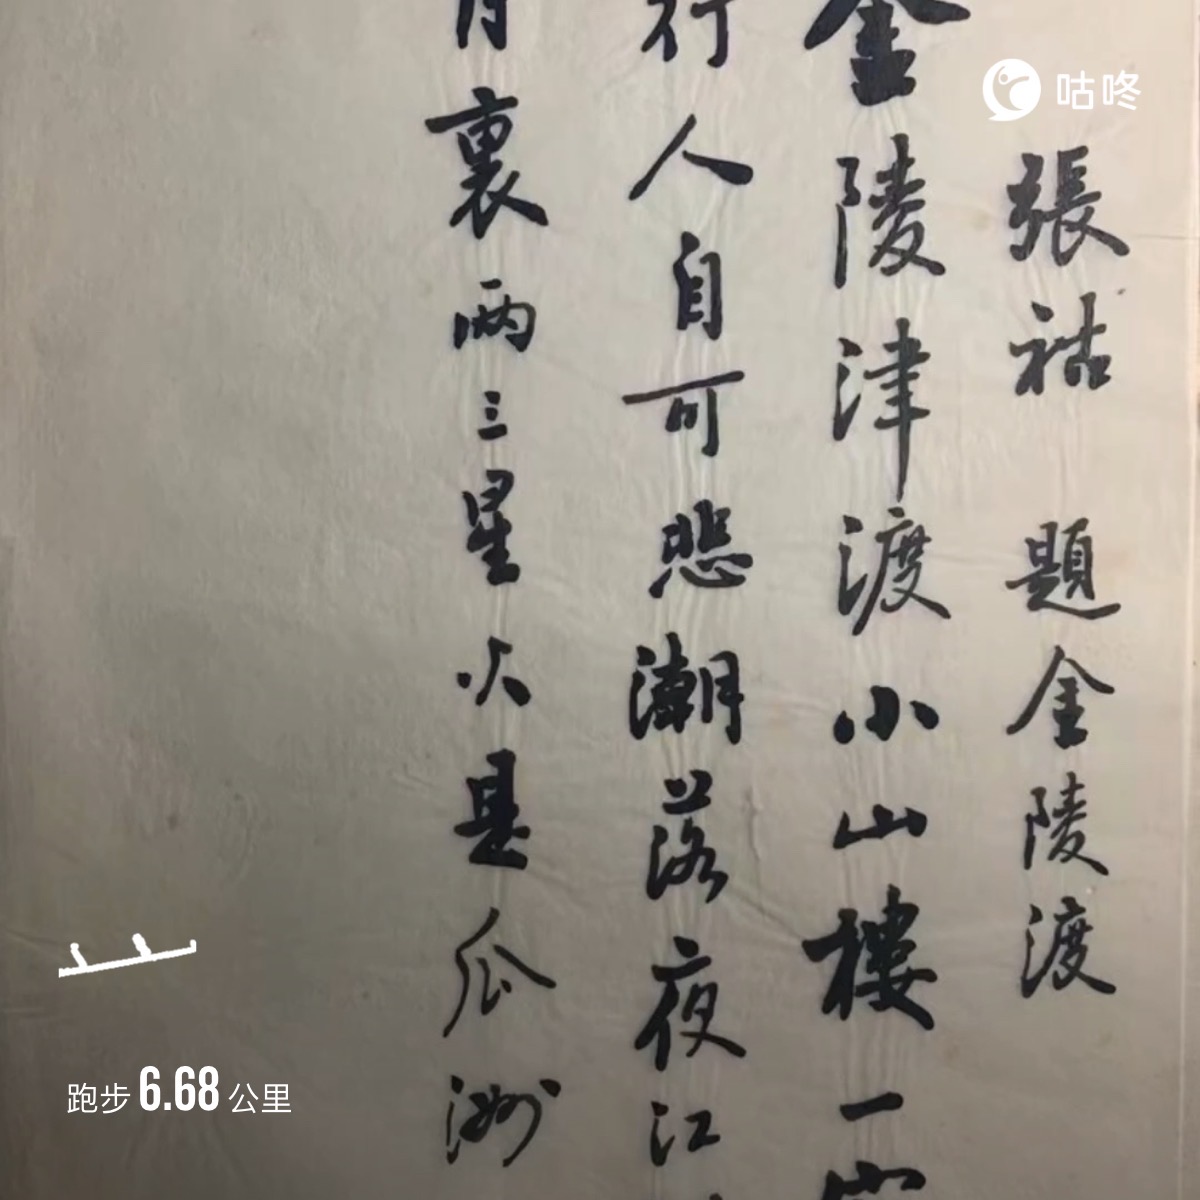 咕咚
張祜 題金陵渡
金陵津渡小山樓一
行人自可悲潮落夜江
裏兩三星火是瓜洲
跑步 6.68 公里